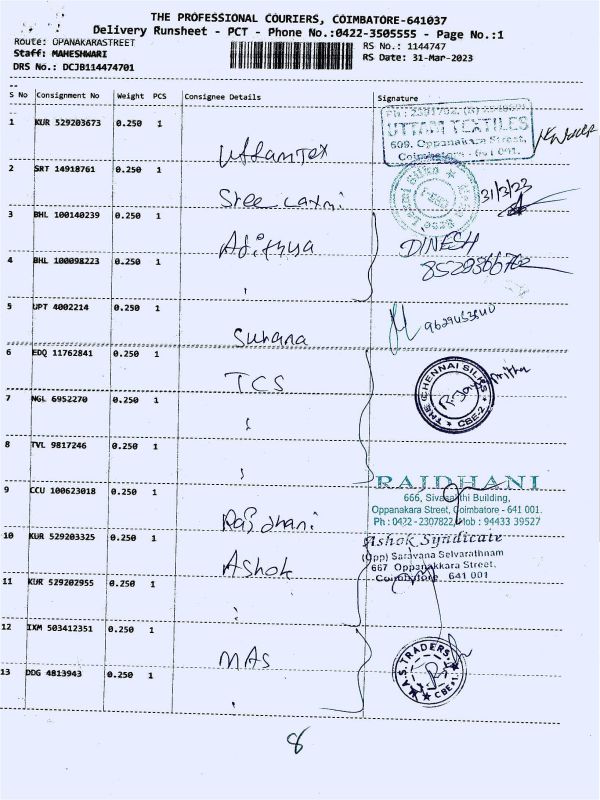 THE PROFESSIONAL COURIERS, COIMBATORE-641037
Delivery Runsheet - PCT - Phone No.:0422-3505555 - Page No.:1
Route: OPANAKARASTREET
Staff: MAHESHWARI
DRS No.: DCJB114474701
RS No.: 1144747
RS Date: 31-Mar-2023
S No Consignment No Weight PCS Consignee Details Signature
1 KUR 529203673 0.250 1 Uttamtex
UTTAM TEXTILES
609, Oppanakara Street,
Coimbatore - 641 001.
2 SRT 14918761 0.250 1 Sree Laxmi
31/3/23
3 BHL 100140239 0.250 1 Adithya
DINESH
4 BHL 100098223 0.250 1 "
5 UPT 4002214 0.250 1 Suhana
6 EDQ 11762841 0.250 1 TCS
THE CHENNAI SILKS
CBE-2
7 NGL 6952270 0.250 1 "
8 TVL 9817246 0.250 1 "
9 CCU 100623018 0.250 1 Rajdhani
RAJDHANI
666, Sivasakthi Building,
Oppanakara Street, Coimbatore - 641 001.
Ph : 0422 - 2307822, Mob : 94433 39527
10 KUR 529203325 0.250 1 Ashok
Ashok Syndicate
(Opp) Saravana Selvarathnam
667 Oppanakkara Street,
Coimbatore 641 001
11 KUR 529202955 0.250 1 "
12 IXM 503412351 0.250 1 MAS
M.A.S. TRADERS
CBE-1
13 DDG 4813943 0.250 1 "
8